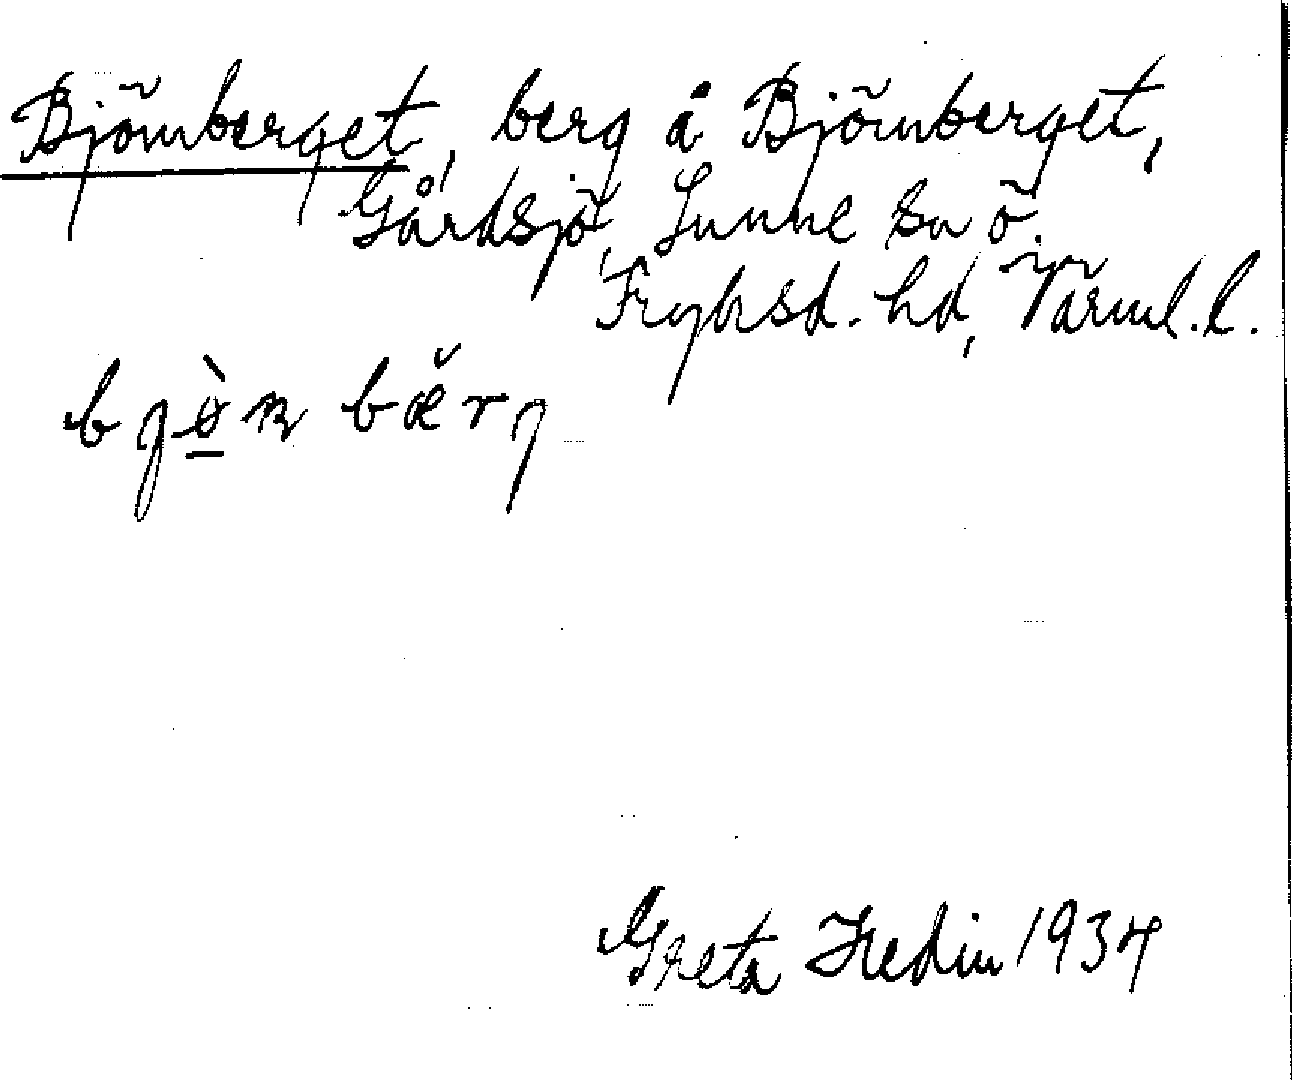 Björnberget, berg å Björnberget,
Gårdsjö, Sunne sn ö.
Fryksd. hd, Värml. l.
bjø̀n bær̆j
Greta Hedin 1934